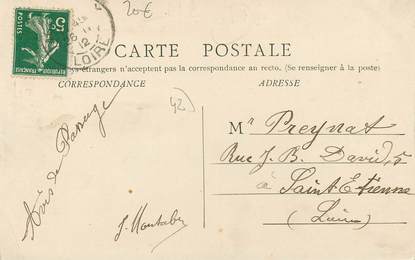 20€
5c
POSTES
REPUBLIQUE FRANÇAISE
12
LOIRE
CARTE POSTALE
pays étrangers n'acceptent pas la correspondance au recto. (Se renseigner à la poste)
CORRESPONDANCE
ADRESSE
42)
Avis de Passage
J. Montabe
Mr Preynat
Rue J. B. David, 5
à Saint Etienne
(Loire)